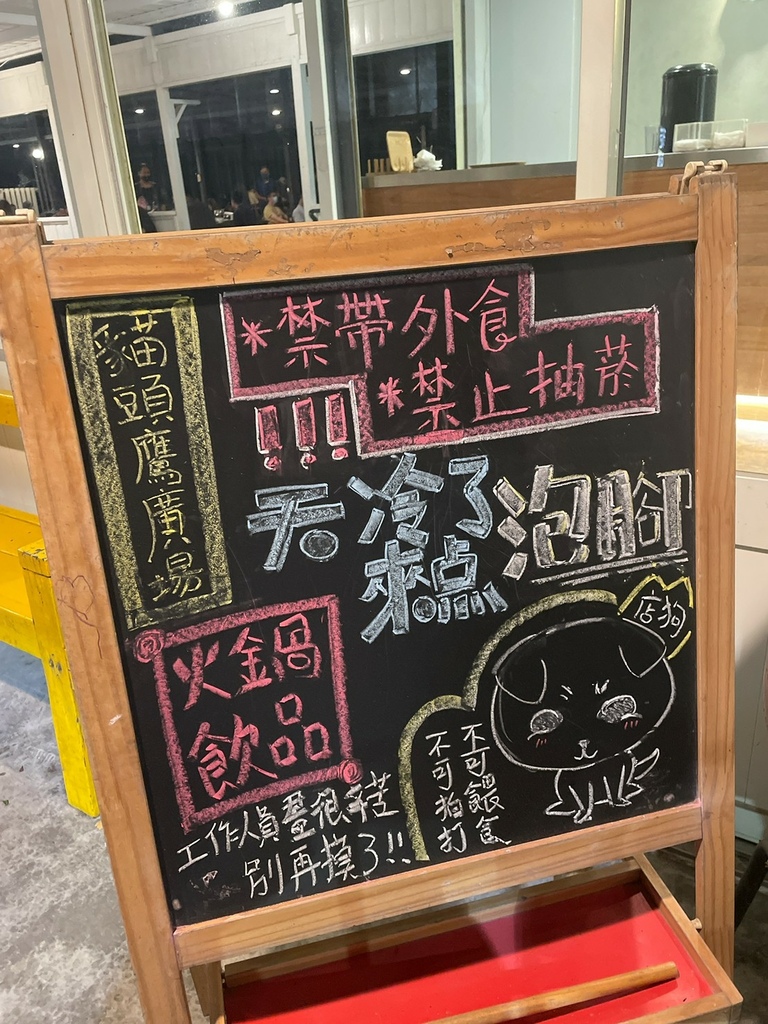 貓頭鷹廣場
*禁帶外食
*禁止抽菸
!!!
天冷了
來點
泡腳
火鍋
飲品
店狗
不可餵食
不可拍打
工作人員畫很辛苦
別再摸了!!